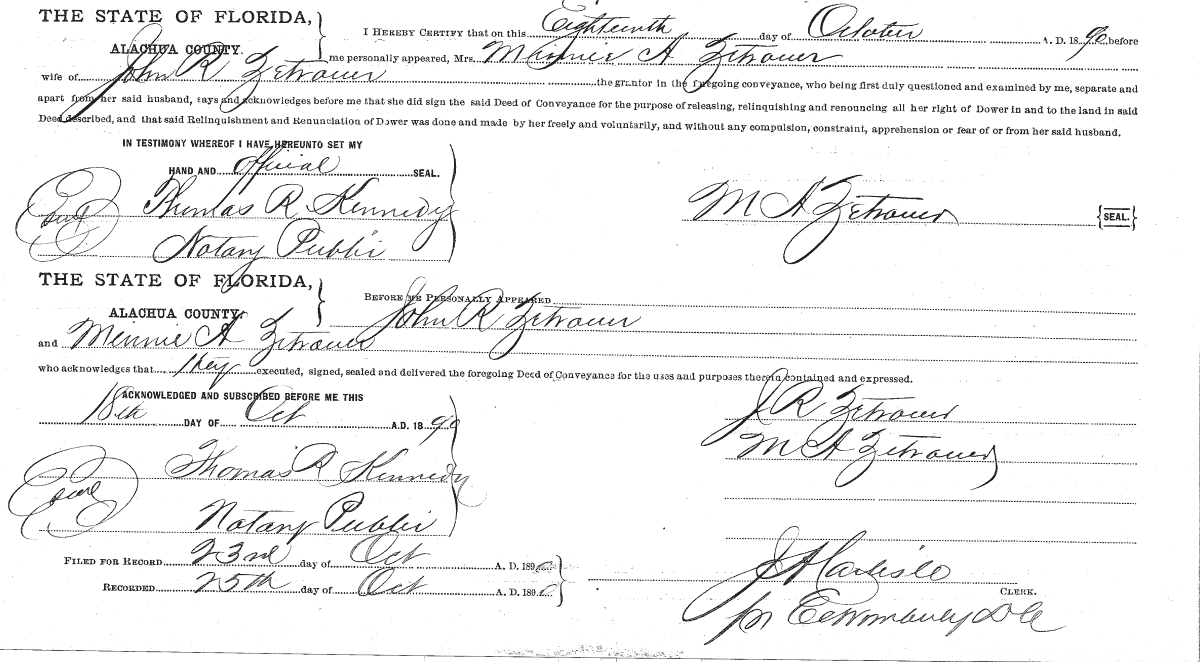 THE STATE OF FLORIDA,
ALACHUA COUNTY.
I HEREBY CERTIFY that on this Eighteenth day of October A. D. 1890 before
me personally appeared, Mrs. Minnie A Zetrouer
wife of John R Zetrouer the grantor in the foregoing conveyance, who being first duly questioned and examined by me, separate and
apart from her said husband, says and acknowledges before me that she did sign the said Deed of Conveyance for the purpose of releasing, relinquishing and renouncing all her right of Dower in and to the land in said
Deed described, and that said Relinquishment and Renunciation of Dower was done and made by her freely and voluntarily, and without any compulsion, constraint, apprehension or fear of or from her said husband.
IN TESTIMONY WHEREOF I HAVE HEREUNTO SET MY
HAND AND official SEAL.
Seal Thomas R Kennedy
Notary Public
M A Zetrouer {SEAL.}
THE STATE OF FLORIDA,
ALACHUA COUNTY.
BEFORE ME PERSONALLY APPEARED
John R Zetrouer
and Minnie A Zetrouer
who acknowledges that they executed, signed, sealed and delivered the foregoing Deed of Conveyance for the uses and purposes therein contained and expressed.
ACKNOWLEDGED AND SUBSCRIBED BEFORE ME THIS
18th DAY OF Oct A.D. 1890
J R Zetrouer
M A Zetrouer
Seal Thomas R Kennedy
Notary Public
FILED FOR RECORD 23rd day of Oct A. D. 1890
RECORDED 25th day of Oct A. D. 1890
J A Carlisle
CLERK.
pr